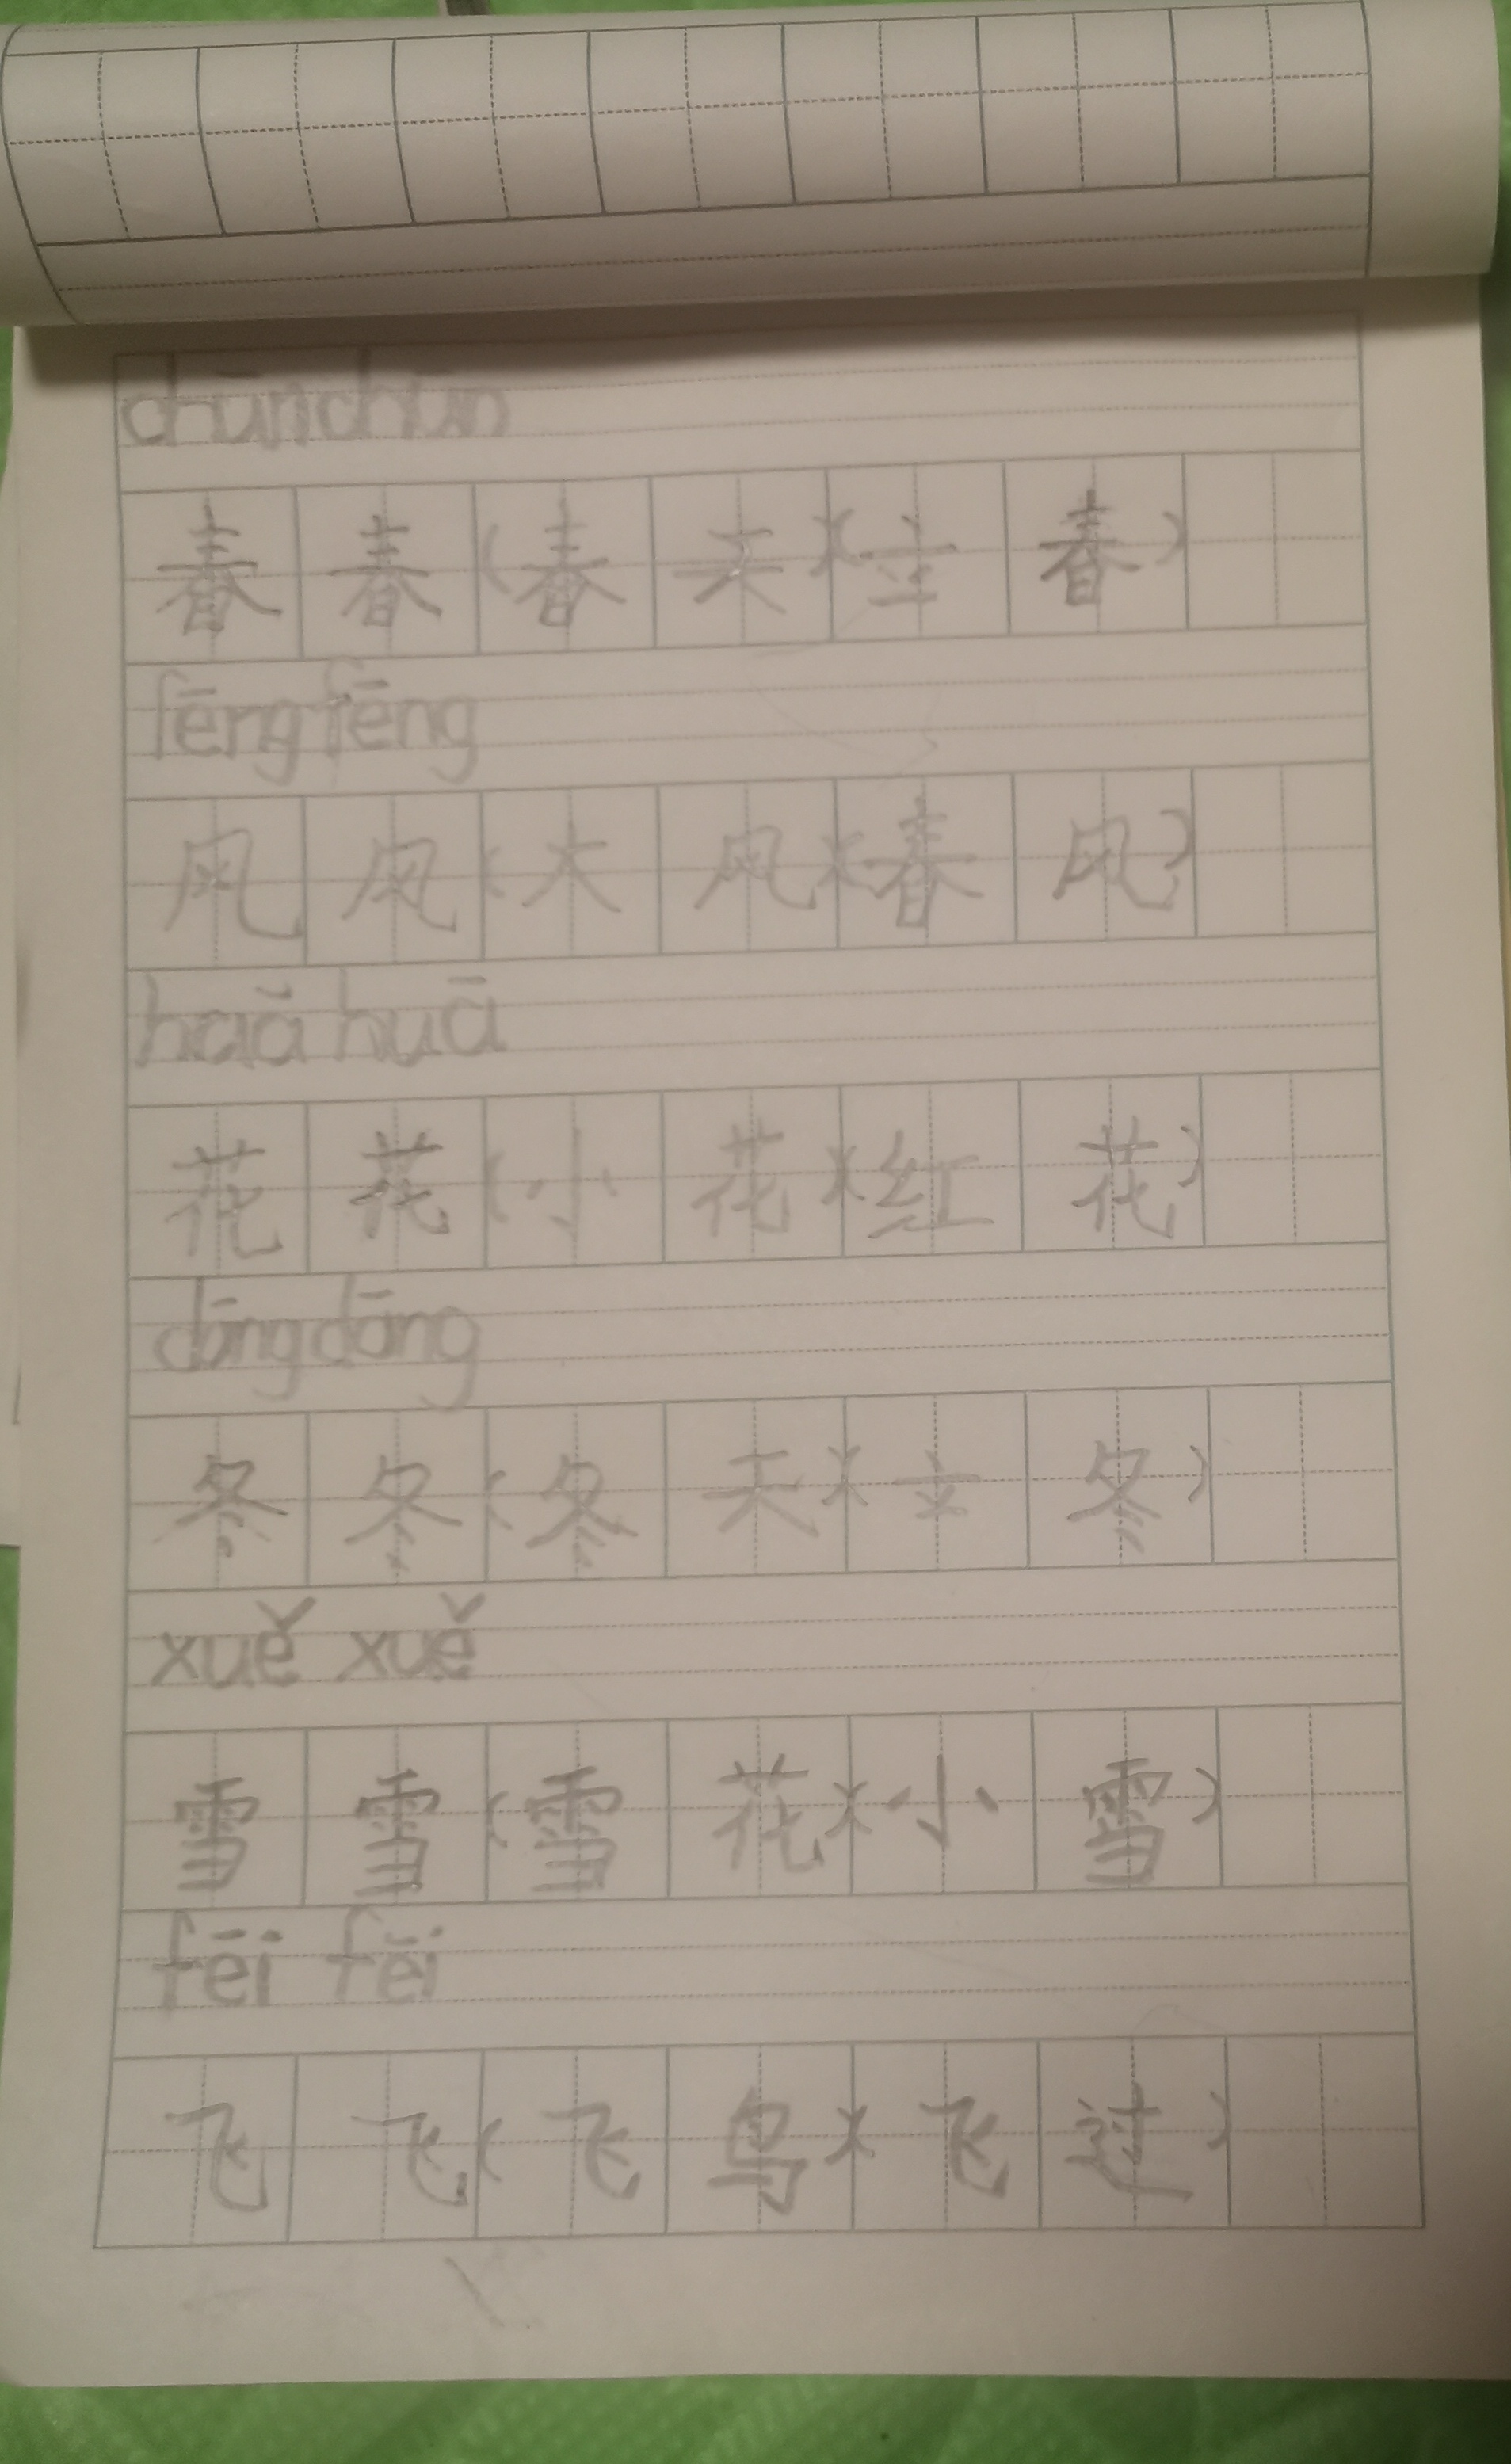 chūn chūn
春 春 (春 天) (立 春)
fēng fēng
风 风 (大 风) (春 风)
haā huā
花 花 (小 花) (红 花)
dōng dōng
冬 冬 (冬 天) (立 冬)
xuě xuě
雪 雪 (雪 花) (小 雪)
fēi fēi
飞 飞 (飞 鸟) (飞 过)